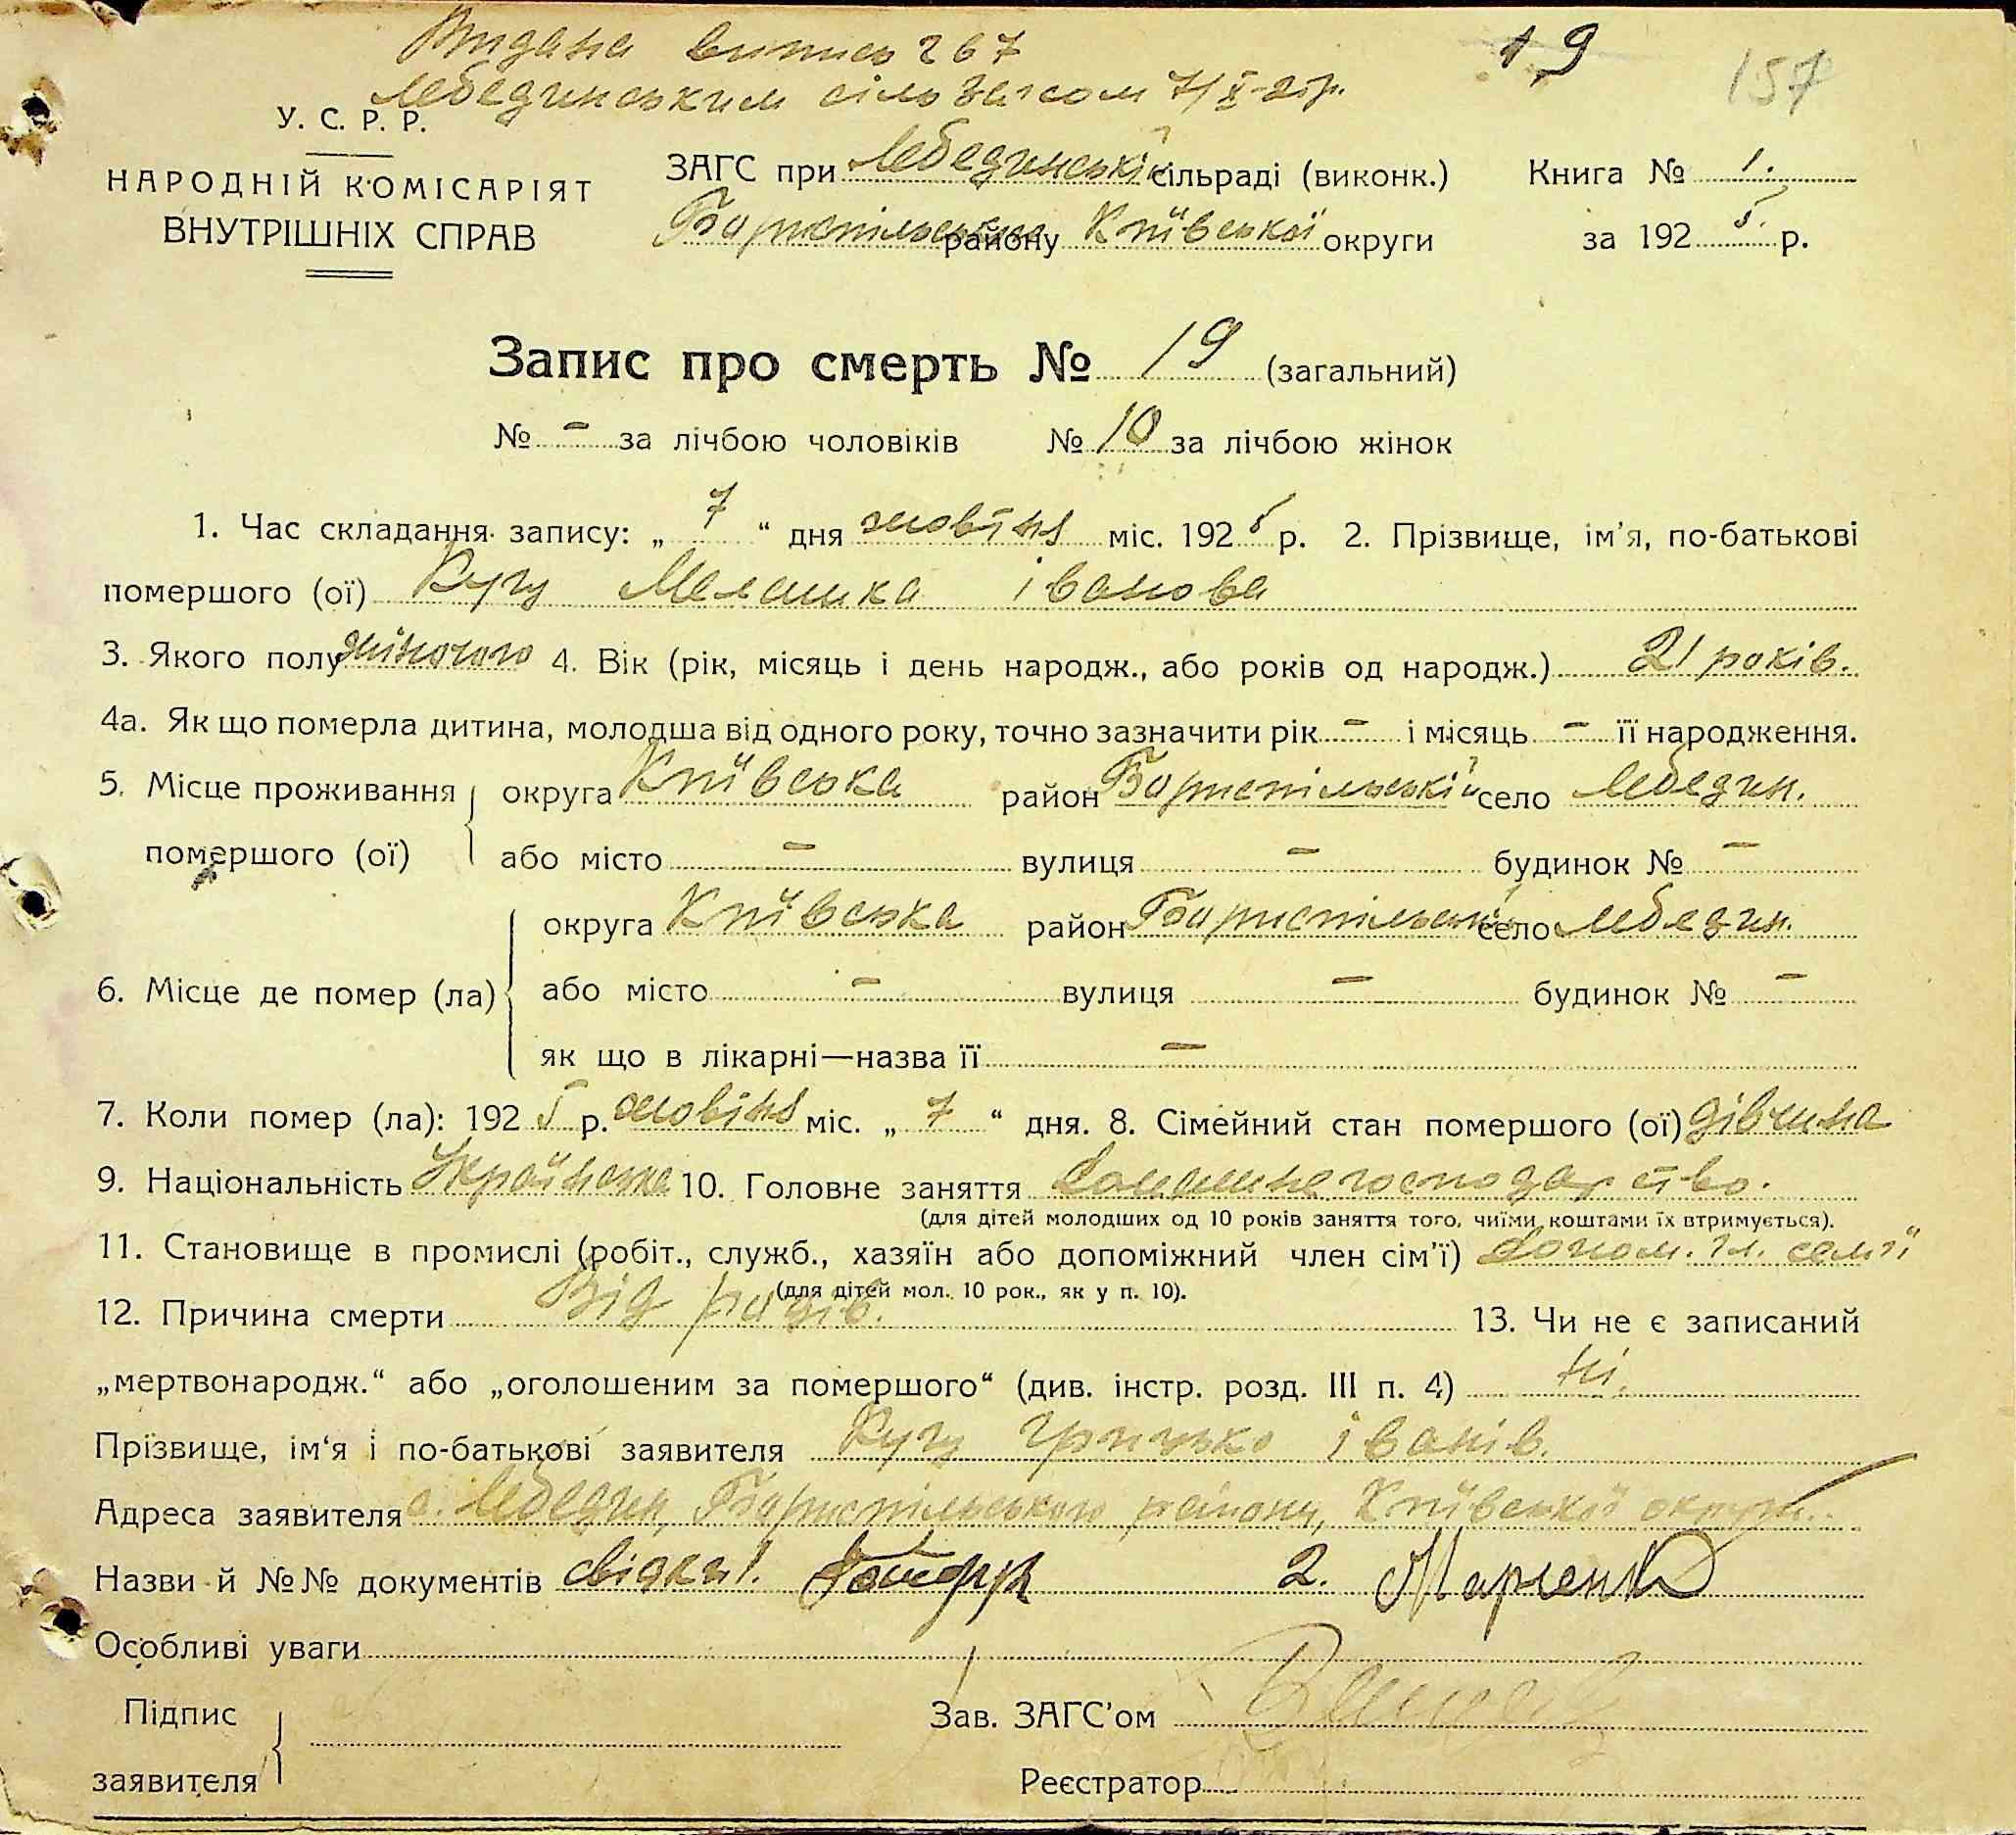 Видана випись 267
19
157
Лебединським сільзагсом 7/X-25р.
У. С. Р. Р.
НАРОДНІЙ КОМІСАРІЯТ
ВНУТРІШНІХ СПРАВ
ЗАГС при Лебединській сільраді (виконк.)
Бориспільського району Київської округи
Книга № 1.
за 1925 р.
Запис про смерть № 19 (загальний)
№ - за лічбою чоловіків № 10 за лічбою жінок
1. Час складання запису: „ 7 “ дня жовтня міс. 1925 р. 2. Прізвище, ім'я, по-батькові
помершого (ої) Кугу Мелашка іванова
3. Якого полу жіночого 4. Вік (рік, місяць і день народж., або років од народж.) 21 років.
4а. Як що померла дитина, молодша від одного року, точно зазначити рік - і місяць - її народження.
5. Місце проживання помершого (ої) округа Київська район Бориспільській село Лебедин.
або місто - вулиця - будинок № -
6. Місце де помер (ла) округа Київська район Бориспільській село Лебедин.
або місто - вулиця - будинок № -
як що в лікарні—назва її -
7. Коли помер (ла): 1925 р. жовтня міс. „ 7 “ дня. 8. Сімейний стан помершого (ої) дівчина
9. Національність Українська 10. Головне заняття домашне господарство.
(для дітей молодших од 10 років заняття того, чиїми коштами їх втримується).
11. Становище в промислі (робіт., служб., хазяїн або допоміжний член сім'ї) допом. чл. семії
(для дітей мол. 10 рок., як у п. 10).
12. Причина смерти Від родів. 13. Чи не є записаний
„мертвонародж.“ або „оголошеним за помершого“ (див. інстр. розд. III п. 4) ні.
Прізвище, ім'я і по-батькові заявителя Кугу Грицько іванів.
Адреса заявителя с. Лебедин, Бориспільського району, Київської округи.
Назви й №№ документів свідки 1. 2. Марченко
Особливі уваги
Підпис
заявителя
Зав. ЗАГС'ом
Реєстратор